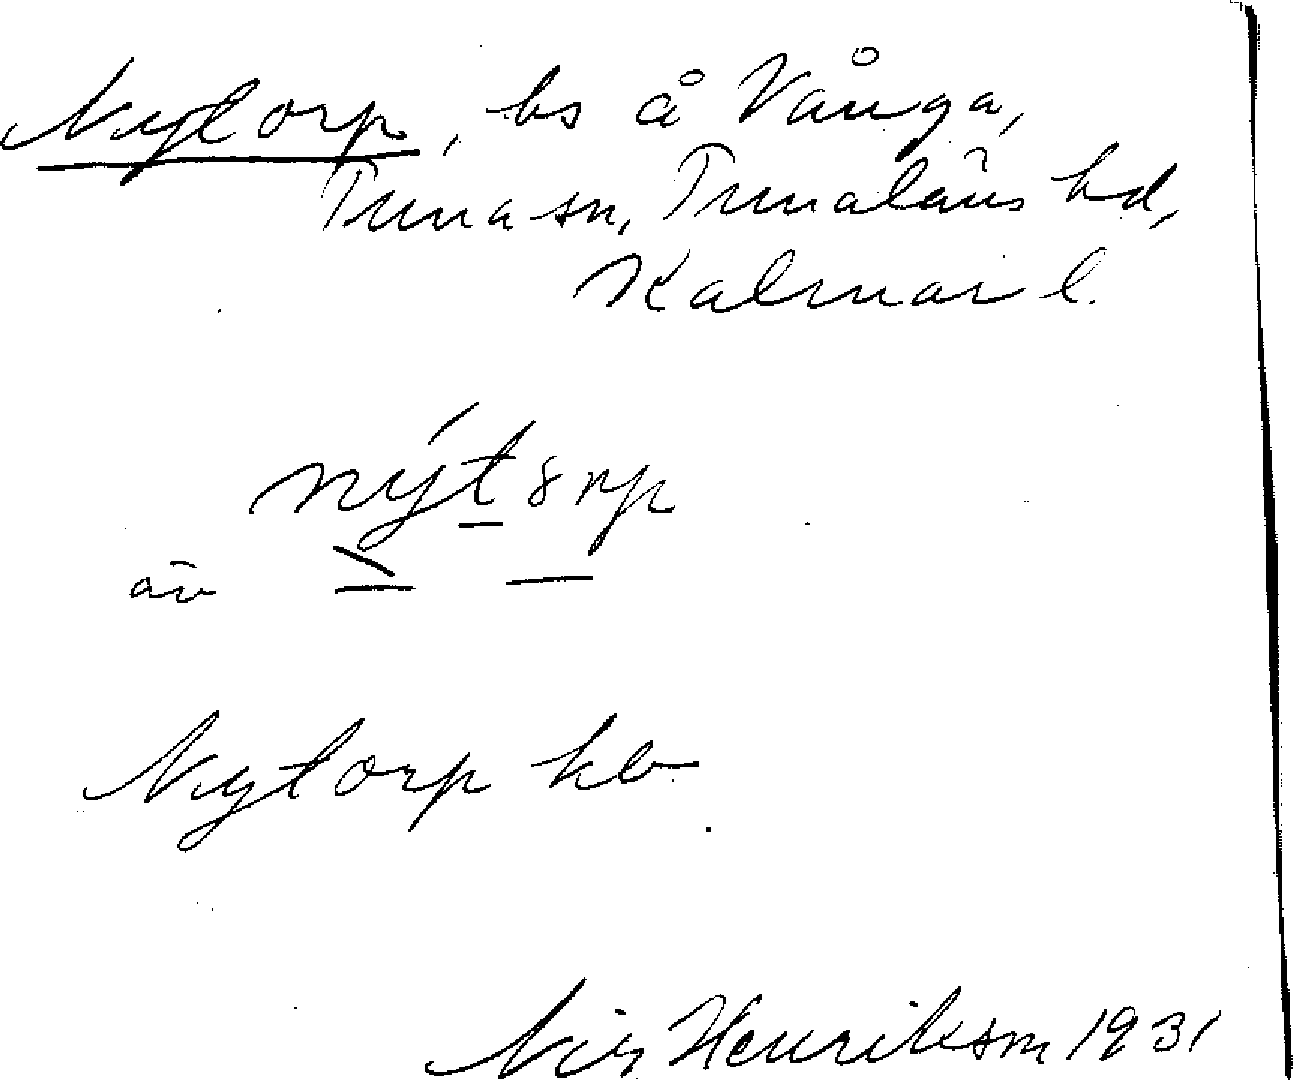 Nytorp, bs å Vånga,
Tuna sn, Tunaläns hd,
Kalmar l.
nýt8rp
äv
Nytorp kb
Nils Henriksson 1931